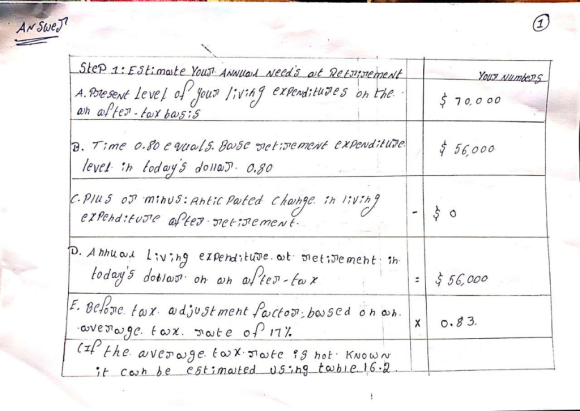 Answer
1
Step 1: Estimate Your Annual Needs at Retirement
Your Numbers
A. Present Level of your living expenditures on the
an after-tax basis
$ 70.000
B. Time 0.80 equals. Base retirement expenditure
level in today's dollar. 0.80
$ 56,000
C. Plus or minus: Anticipated change in living
expenditure after retirement.
- $ 0
D. Annual Living expenditure at retirement in
today's dollar on an after-tax
= $ 56,000
E. Before tax adjustment factor, based on an.
average tax rate of 17%
X 0.83.
(If the average tax rate is not known
it can be estimated using table 16.2